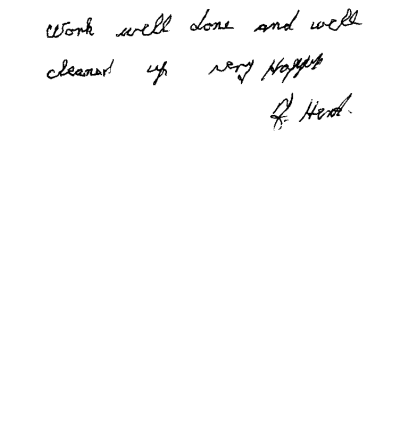 Work well done and well
cleaned up very Happy
R. Herd.